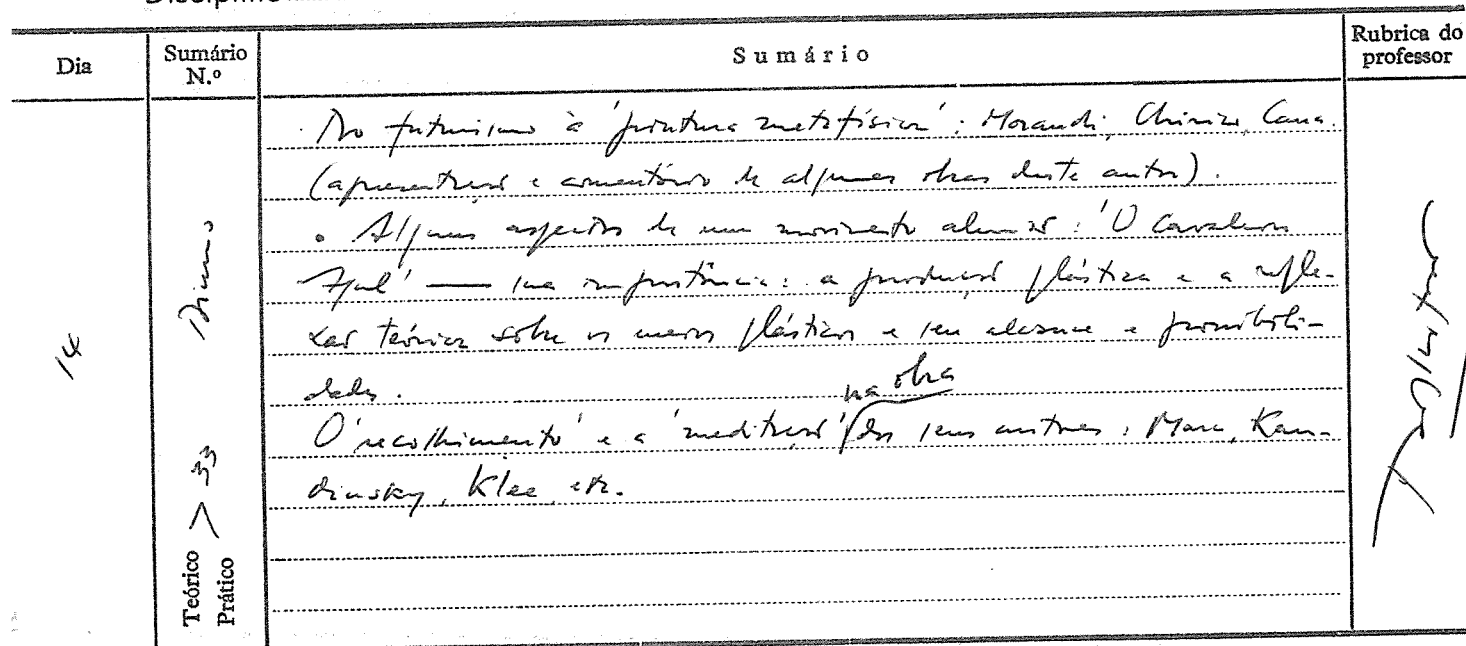 Dia
Sumário N.º
Sumário
Rubrica do professor
14
Teórico > 33 Diurno
Prático
. Do futurismo à 'pintura metafísica': Morandi, Chirico, Carra.
(apresentação e comentário de algumas obras deste autor).
. Alguns aspectos de um movimento alemão: 'O Cavaleiro
Azul' — sua importância: a produção plástica e a refle-
xão teórica sobre os meios plásticos e seu alcance e possibili-
dades.
na obra
O 'recolhimento' e a 'meditação' dos seus autores: Marc, Kan-
dinsky, Klee, etc.